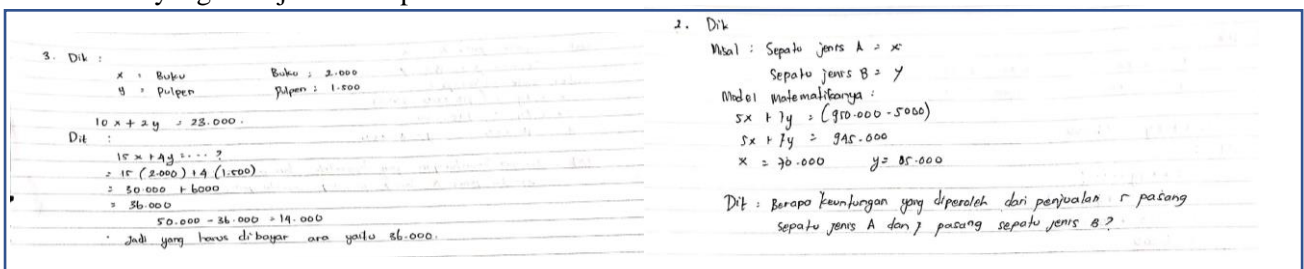 3. Dik :
x : Buku Buku : 2.000
y : Pulpen Pulpen : 1.500
10 x + 2 y = 23.000.
Dit :
15 x + 4y = . . . ?
= 15 (2.000) + 4 (1.500)
= 30.000 + 6000
= 36.000
50.000 - 36.000 = 14.000
Jadi yang harus dibayar ara yaitu 36.000.
2. Dik
Misal : Sepatu jenis A = x
Sepatu jenis B = y
Model matematikanya :
5x + 7y = (950.000 - 5000)
5x + 7y = 945.000
x = 70.000 y = 85.000
Dit : Berapa keuntungan yang diperoleh dari penjualan 5 pasang
sepatu jenis A dan 7 pasang sepatu jenis B ?